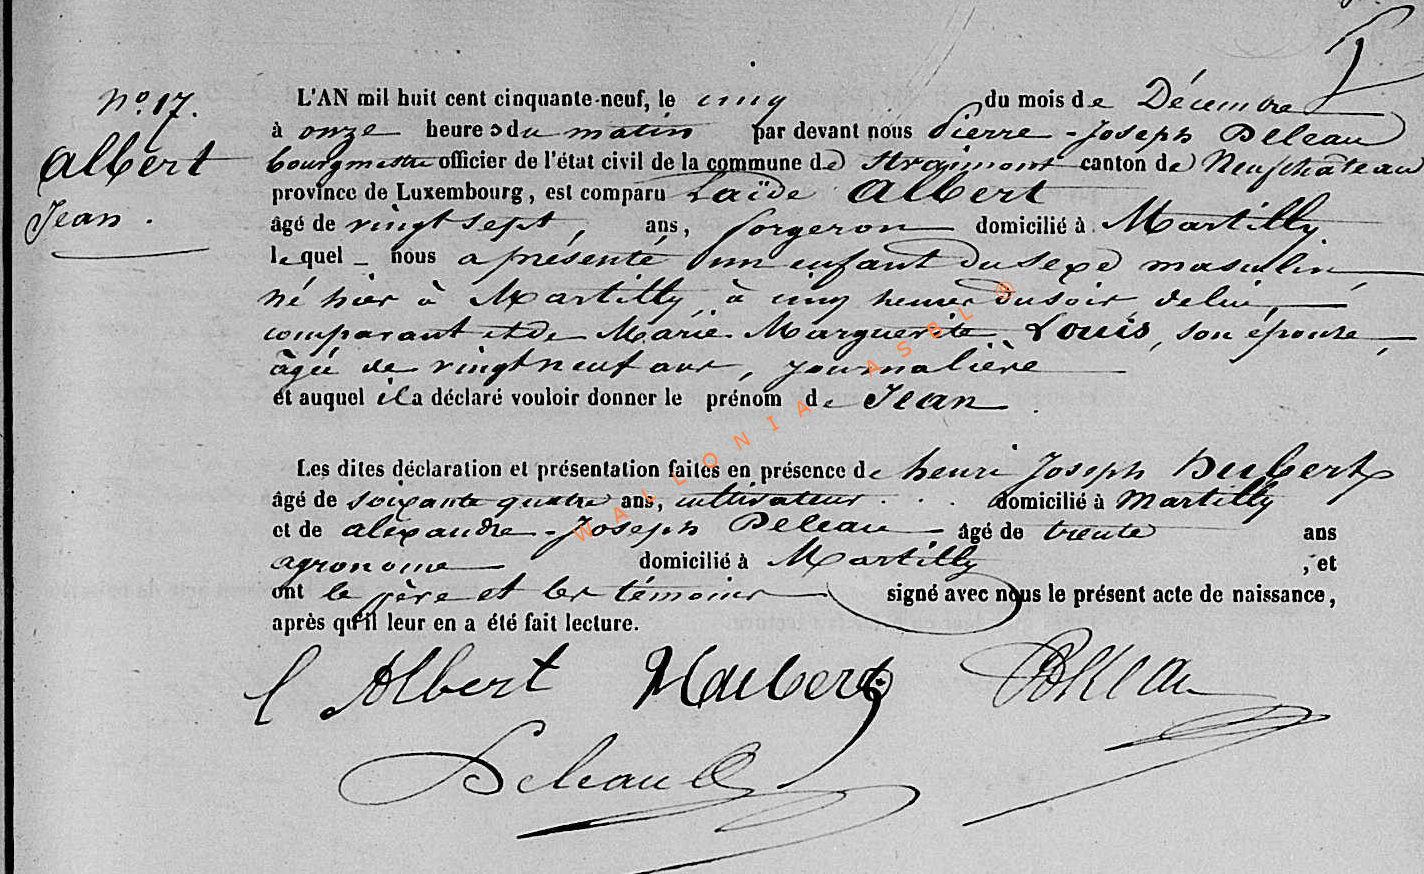 No. 17.
Albert
Jean.
L'AN mil huit cent cinquante-neuf, le cinq du mois de Décembre
à onze heures du matin par devant nous Pierre-Joseph Deleau
bourgmestre officier de l'état civil de la commune de Straimont canton de Neufchâteau
province de Luxembourg, est comparu Laïde Albert
âgé de vingt sept, ans, forgeron domicilié à Martilly
lequel nous a présenté un enfant du sexe masculin
né hier à Martilly à cinq heures du soir de lui
comparant et de Marie Marguerite Louis, son épouse,
âgée de vingt neuf ans, journalière
et auquel il a déclaré vouloir donner le prénom de Jean.
Les dites déclaration et présentation faites en présence de henri Joseph Hubert
âgé de soixante quatre ans, cultivateur domicilié à Martilly
et de alexandre-Joseph Deleau âgé de trente ans
agronome domicilié à Martilly, et
ont le père et les témoins signé avec nous le présent acte de naissance,
après qu'il leur en a été fait lecture.
l Albert Hubert Deleau
Deleau
WALLONIA ASBL ®